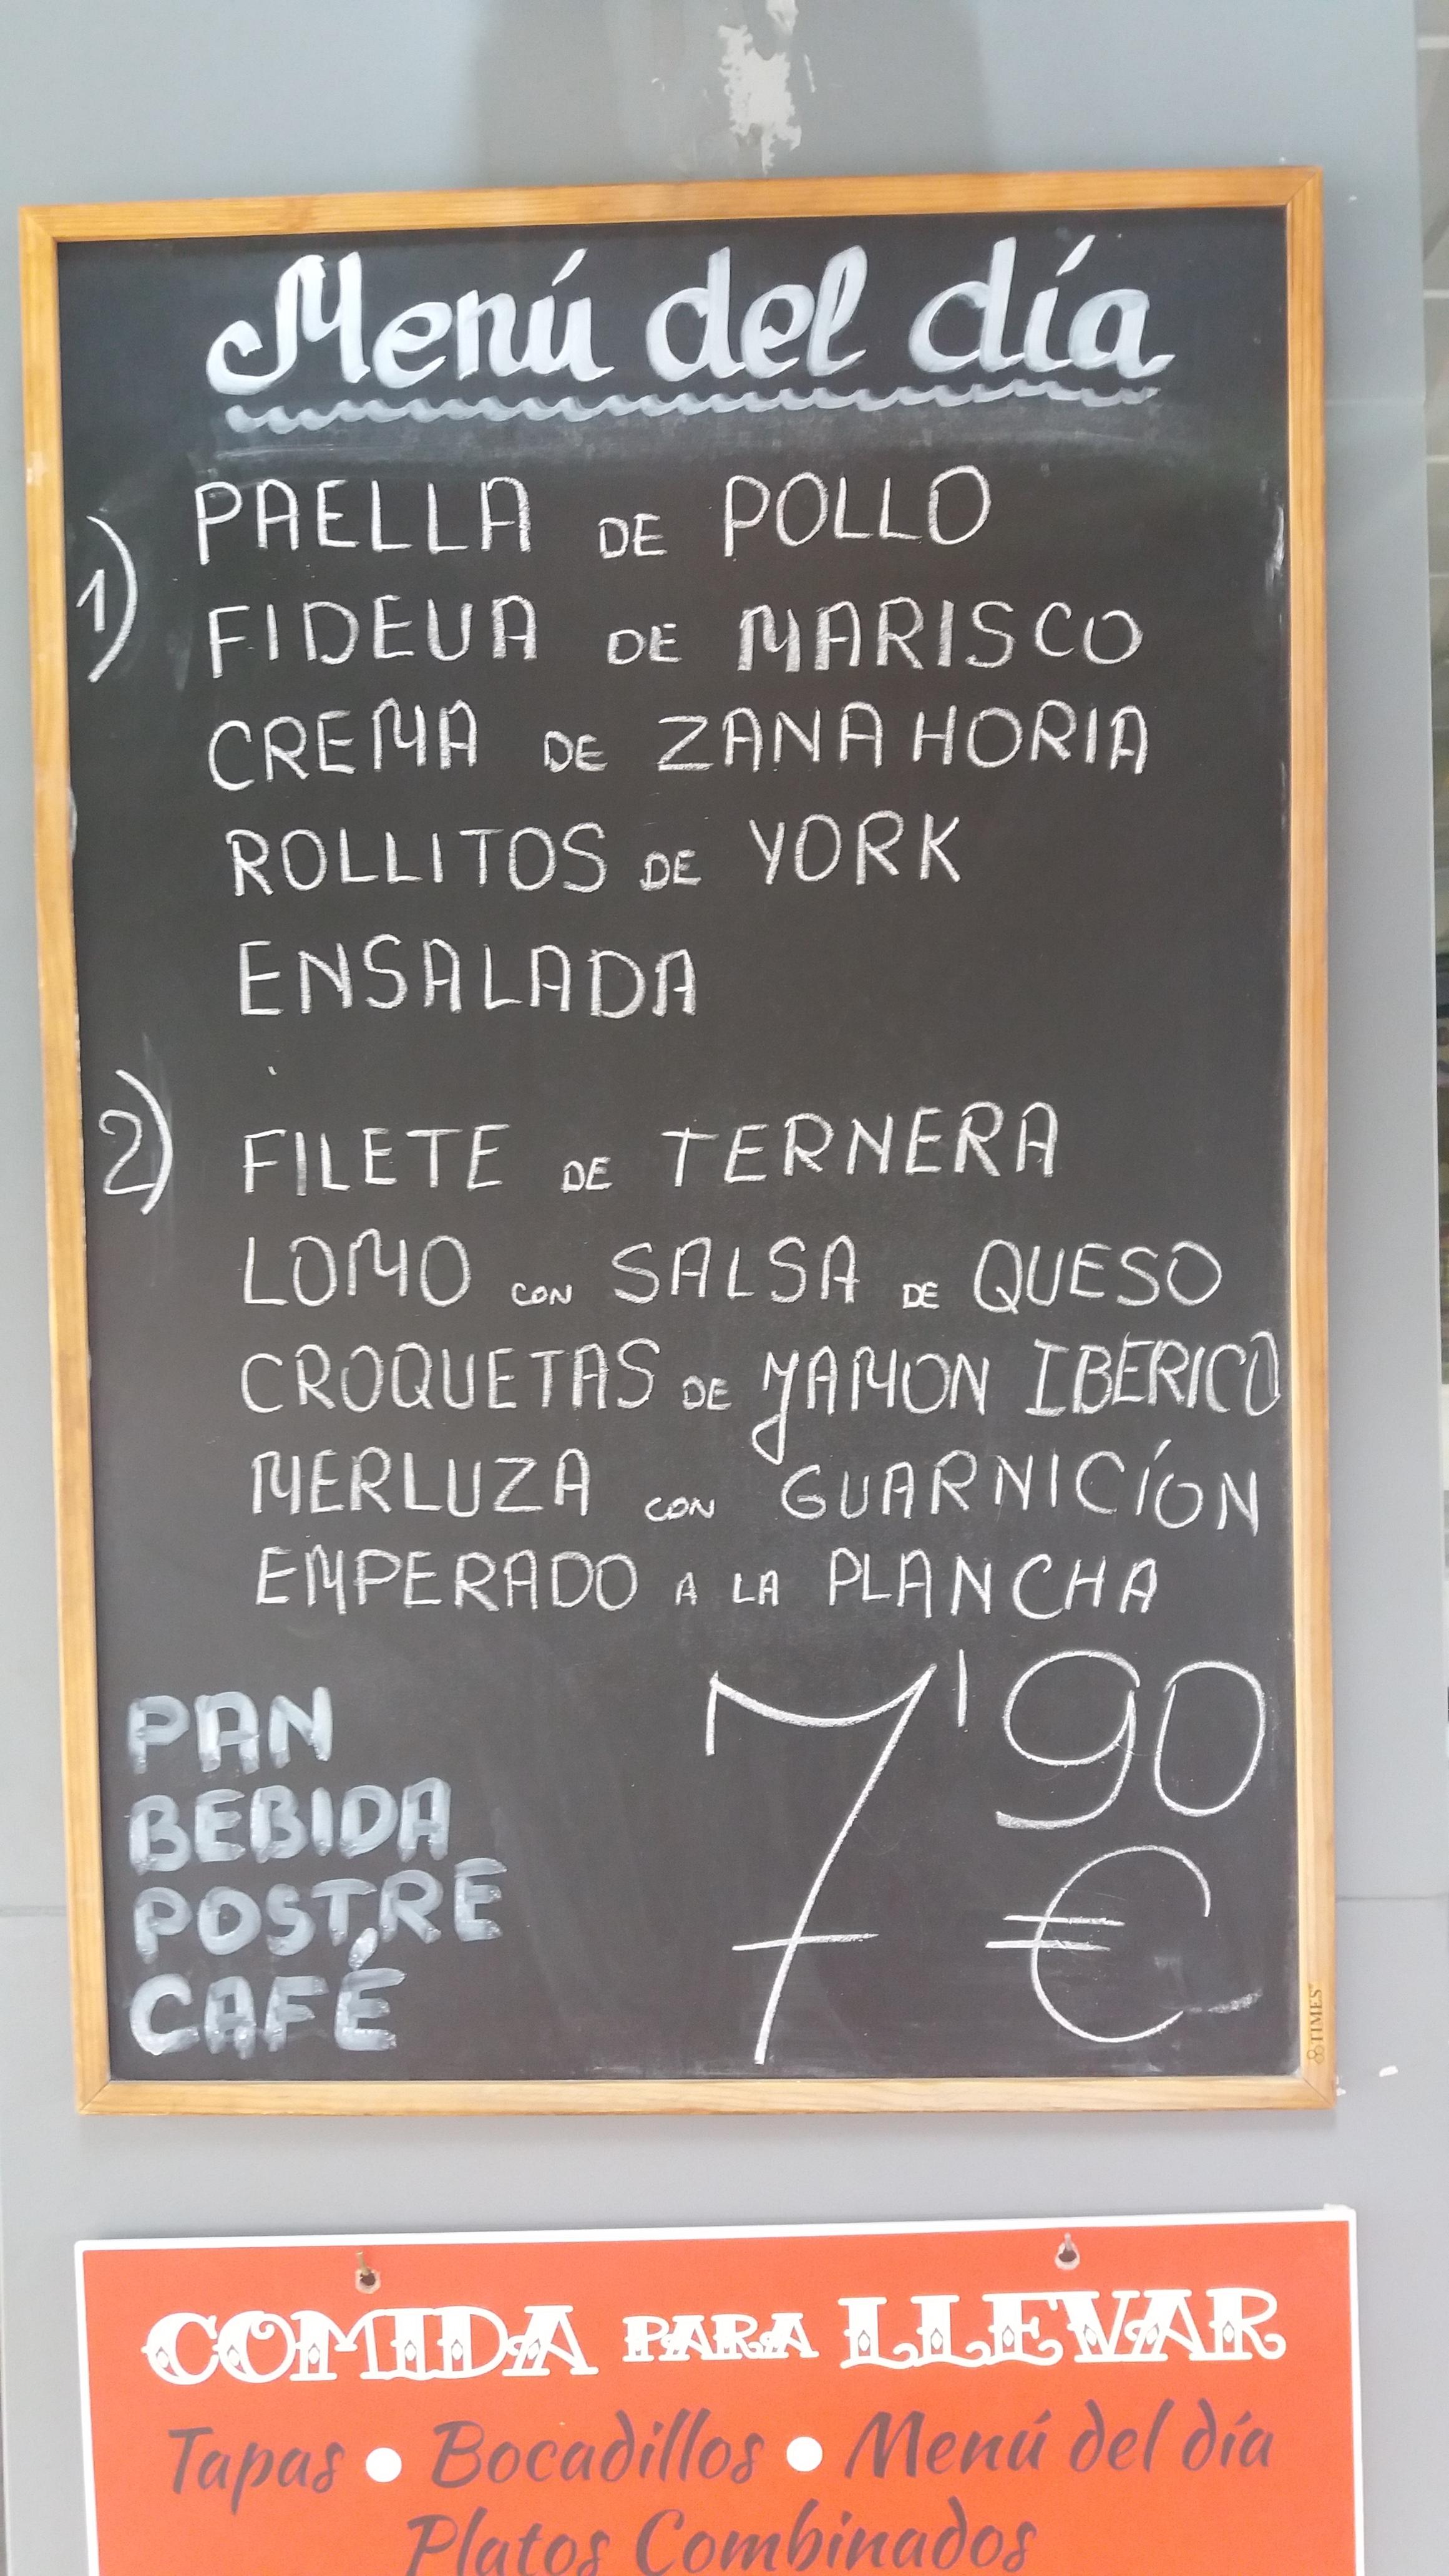 Menú del día
1)
PAELLA DE POLLO
FIDEUA DE MARISCO
CREMA DE ZANAHORIA
ROLLITOS DE YORK
ENSALADA
2)
FILETE DE TERNERA
LOMO CON SALSA DE QUESO
CROQUETAS DE JAMON IBERICO
MERLUZA CON GUARNICÍON
EMPERADO A LA PLANCHA
PAN
BEBIDA
POSTRE
CAFÉ
7'90
€
TIMES
COMIDA PARA LLEVAR
Tapas • Bocadillos • Menú del día
Platos Combinados